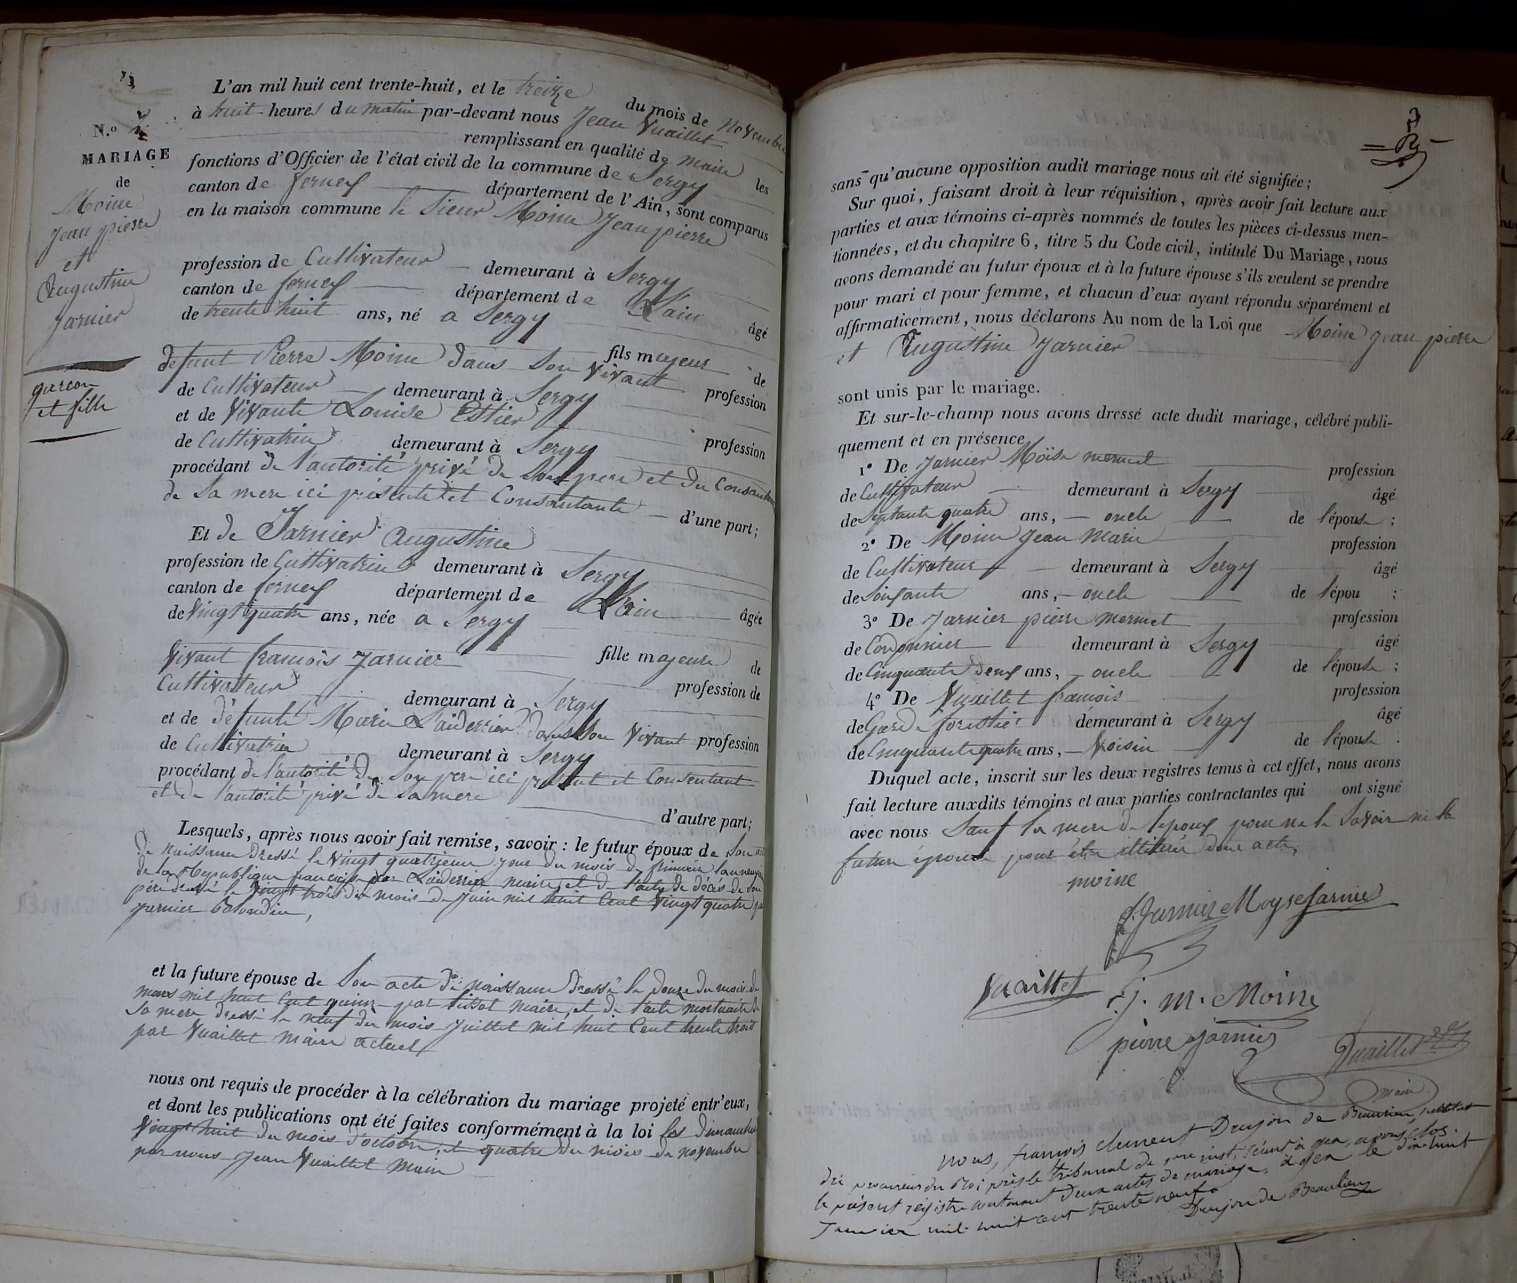 N.º 2
MARIAGE
de
Moine
Jean pierre
et
Augustine
Jarnier
garcon
et fille
L'an mil huit cent trente-huit, et le treize du mois de Novembre
à huit heures du matin par-devant nous Jean Vuaillet
remplissant en qualité de maire les
fonctions d'Officier de l'état civil de la commune de Sergy
canton de ferney département de l'Ain, sont comparus
en la maison commune le Sieur Moine Jean pierre
profession de Cultivateur demeurant à Sergy
canton de ferney département de L'ain âgé
de trente huit ans, né a Sergy
fils majeur de
defunt Pierre Moine dans Son vivant profession
de Cultivateur demeurant à Sergy
et de vivante Louise Estier profession
de Cultivatrice demeurant à Sergy
procédant de l'autorité privé de Son pere et du Consentement
de Sa mere ici présente et Consentante d'une part;
Et de Jarnier Augustine
profession de Cultivatrice demeurant à Sergy
canton de ferney département de L'ain âgée
de vingt quatre ans, née a Sergy
fille majeure de
vivant francois Jarnier profession de
Cultivateur demeurant à Sergy
et de défunte Marie dans Son vivant profession
de Cultivatrice demeurant à Sergy
procédant de l'autorité de Son pere ici présent et Consentant
et de l'autorité privé de Sa mere d'autre part;
Lesquels, après nous avoir fait remise, savoir : le futur époux de Son acte
de naissance dressé le vingt quatrieme jour du mois de frimaire
de la République francaise par maire, et de l'acte de décès de Son
pere dressé le vingt trois du mois de Juin mil huit Cent vingt quatre par
Jarnier
et la future épouse de Son acte de naissance dressé le douze du mois de
mars mil huit Cent quinze par tissot maire, et de l'acte mortuaire de
Sa mere dressé le neuf du mois Juillet mil huit Cent trente trois
par Vuaillet maire actuel
nous ont requis de procéder à la célébration du mariage projeté entr'eux,
et dont les publications ont été faites conformément à la loi les dimanches
vingt huit du mois d'octobre, et quatre du mois de novembre
par nous Jean Vuaillet maire
sans qu'aucune opposition audit mariage nous ait été signifiée;
Sur quoi, faisant droit à leur réquisition, après avoir fait lecture aux
parties et aux témoins ci-après nommés de toutes les pièces ci-dessus men-
tionnées, et du chapitre 6, titre 5 du Code civil, intitulé Du Mariage, nous
avons demandé au futur époux et à la future épouse s'ils veulent se prendre
pour mari et pour femme, et chacun d'eux ayant répondu séparément et
affirmativement, nous déclarons Au nom de la Loi que Moine Jean pierre
et Augustine Jarnier
sont unis par le mariage.
Et sur-le-champ nous avons dressé acte dudit mariage, célébré publi-
quement et en présence
1º De Jarnier Moïse mermet profession
de Cultivateur demeurant à Sergy âgé
de Septante quatre ans, oncle de l'épouse ;
2º De Moine Jean Marie profession
de Cultivateur demeurant à Sergy âgé
de Soixante ans, oncle de l'épou ;
3º De Jarnier pierre mermet profession
de Cordonnier demeurant à Sergy âgé
de Cinquante deux ans, oncle de l'épouse ;
4º De Vuaillet francois profession
de Garde forestier demeurant à Sergy âgé
de Cinquante quatre ans, Voisin de l'épouse .
Duquel acte, inscrit sur les deux registres tenus à cet effet, nous avons
fait lecture auxdits témoins et aux parties contractantes qui ont signé
avec nous Sauf la mere de l'epoux pour ne le Savoir ni la
future épouse pour être illitérée donc acte,
moine
Jarnier Moyse Jarnier
Vuaillet
j. m. Moine
pierre jarnier
Vuaillet
maire
Nous, françois Clement Dujon de Beaurieu, substitut
du procureur du Roi près le tribunal de 1ere inst. séant à Gex, avons clos
le présent registre contenant deux actes de mariage, à Gex le dix huit
Janvier mil huit cent trente neuf.